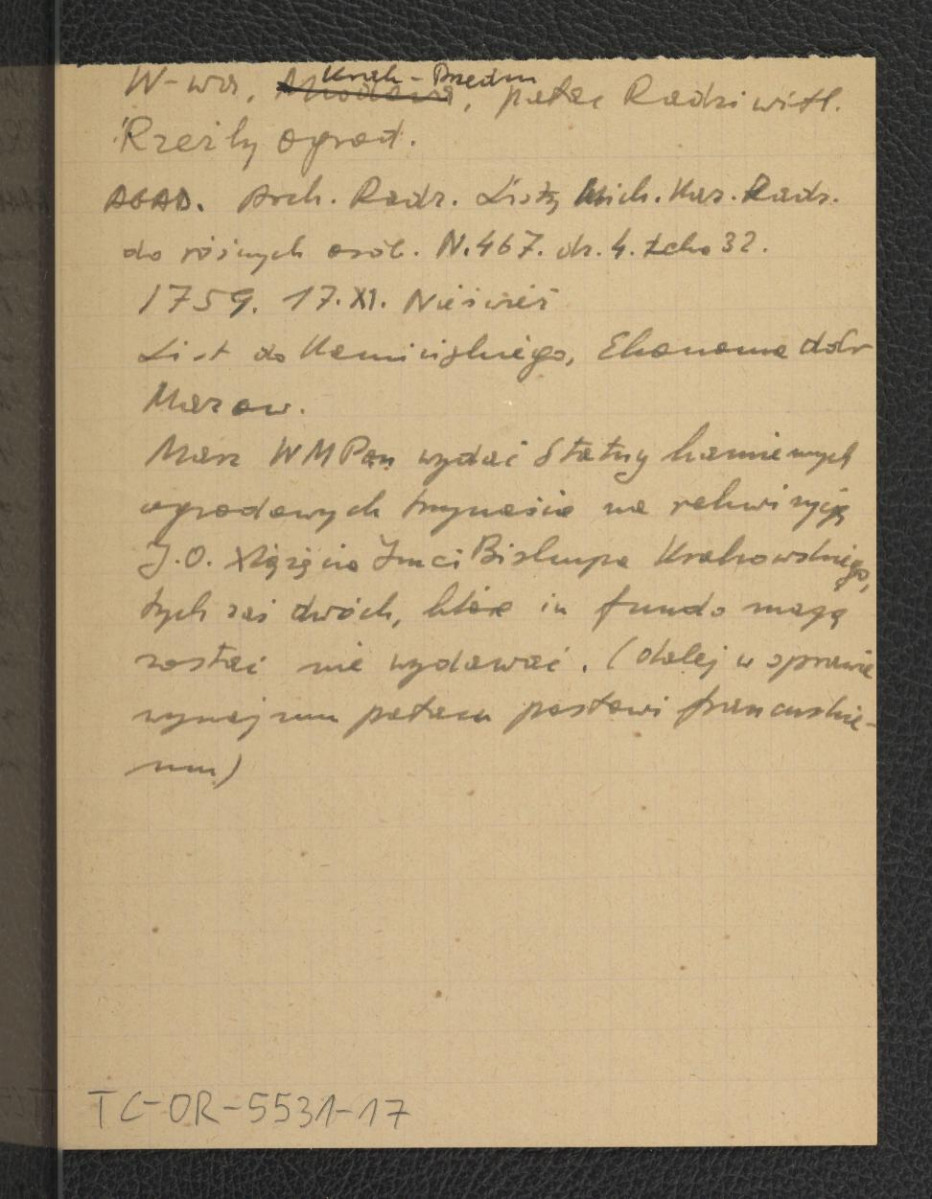 W-wa, Krak-Przedm, pałac Radziwiłł.
Rzeźby ogrod.
AGAD. Arch. Radz. Listy Mich. Kaz. Radz.
do różnych osób. N.467. dz. 4. teka 32.
1759. 17.XI. Nieśwież
List do Kamieńskiego, Ekonoma dóbr
Mazow.
Masz WMPan wydać Statuy kamiennych
ogrodowych trzynaście na rekwizycją
J.O. Xiążęcia Jmci Biskupa Krakowskiego,
tych zaś dwóch, które in fundo mają
zostać nie wydawać. (dalej w sprawie
wynajmu pałacu posłowi francuskie-
mu)
TC-OR-5531-17